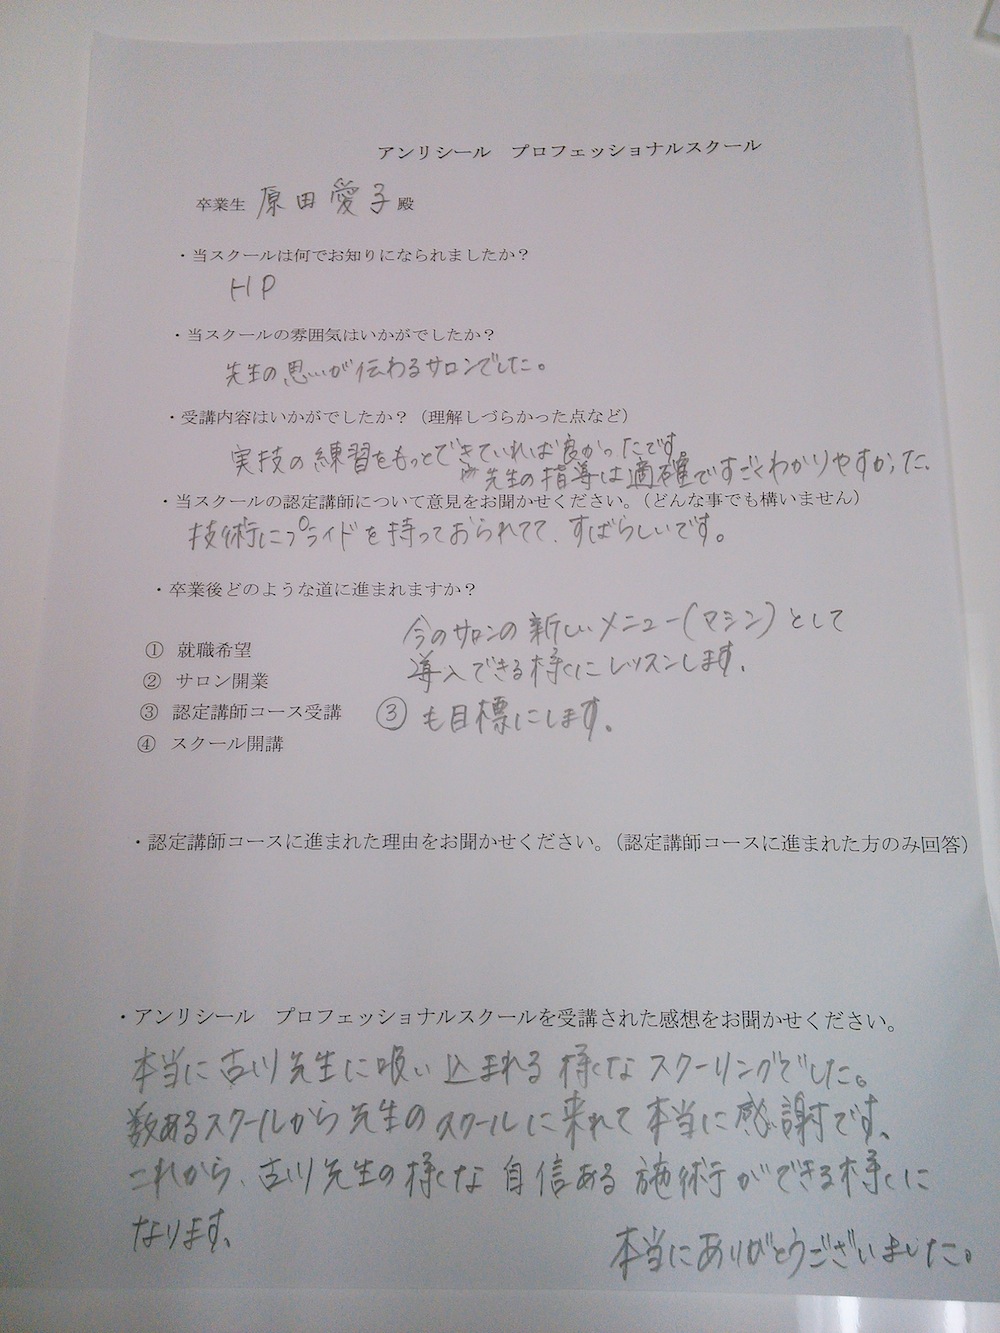 アンリシール　プロフェッショナルスクール
卒業生 原田愛子 殿
・当スクールは何でお知りになられましたか？
HP
・当スクールの雰囲気はいかがでしたか？
先生の思いが伝わるサロンでした。
・受講内容はいかがでしたか？（理解しづらかった点など）
実技の練習をもっとできていれば良かったです。
先生の指導は適確ですごくわかりやすかった。
・当スクールの認定講師について意見をお聞かせください。（どんな事でも構いません）
技術にプライドを持っておられてて、すばらしいです。
・卒業後どのような道に進まれますか？
① 就職希望
② サロン開業
③ 認定講師コース受講
④ スクール開講
今のサロンの新しいメニュー（マシン）として
導入できる様にレッスンします。
③も目標にします。
・認定講師コースに進まれた理由をお聞かせください。（認定講師コースに進まれた方のみ回答）
・アンリシール　プロフェッショナルスクールを受講された感想をお聞かせください。
本当に古川先生に吸い込まれる様なスクーリングでした。
数あるスクールから先生のスクールに来れて本当に感謝です。
これから、古川先生の様な自信ある施術ができる様に
なります。
本当にありがとうございました。